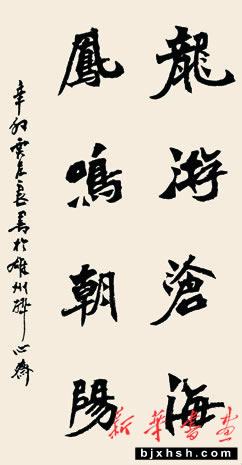 龍游滄海
鳳鳴朝陽
辛卯雲良書於雄州醉心齋
新華書畫
www.bjxhsh.com